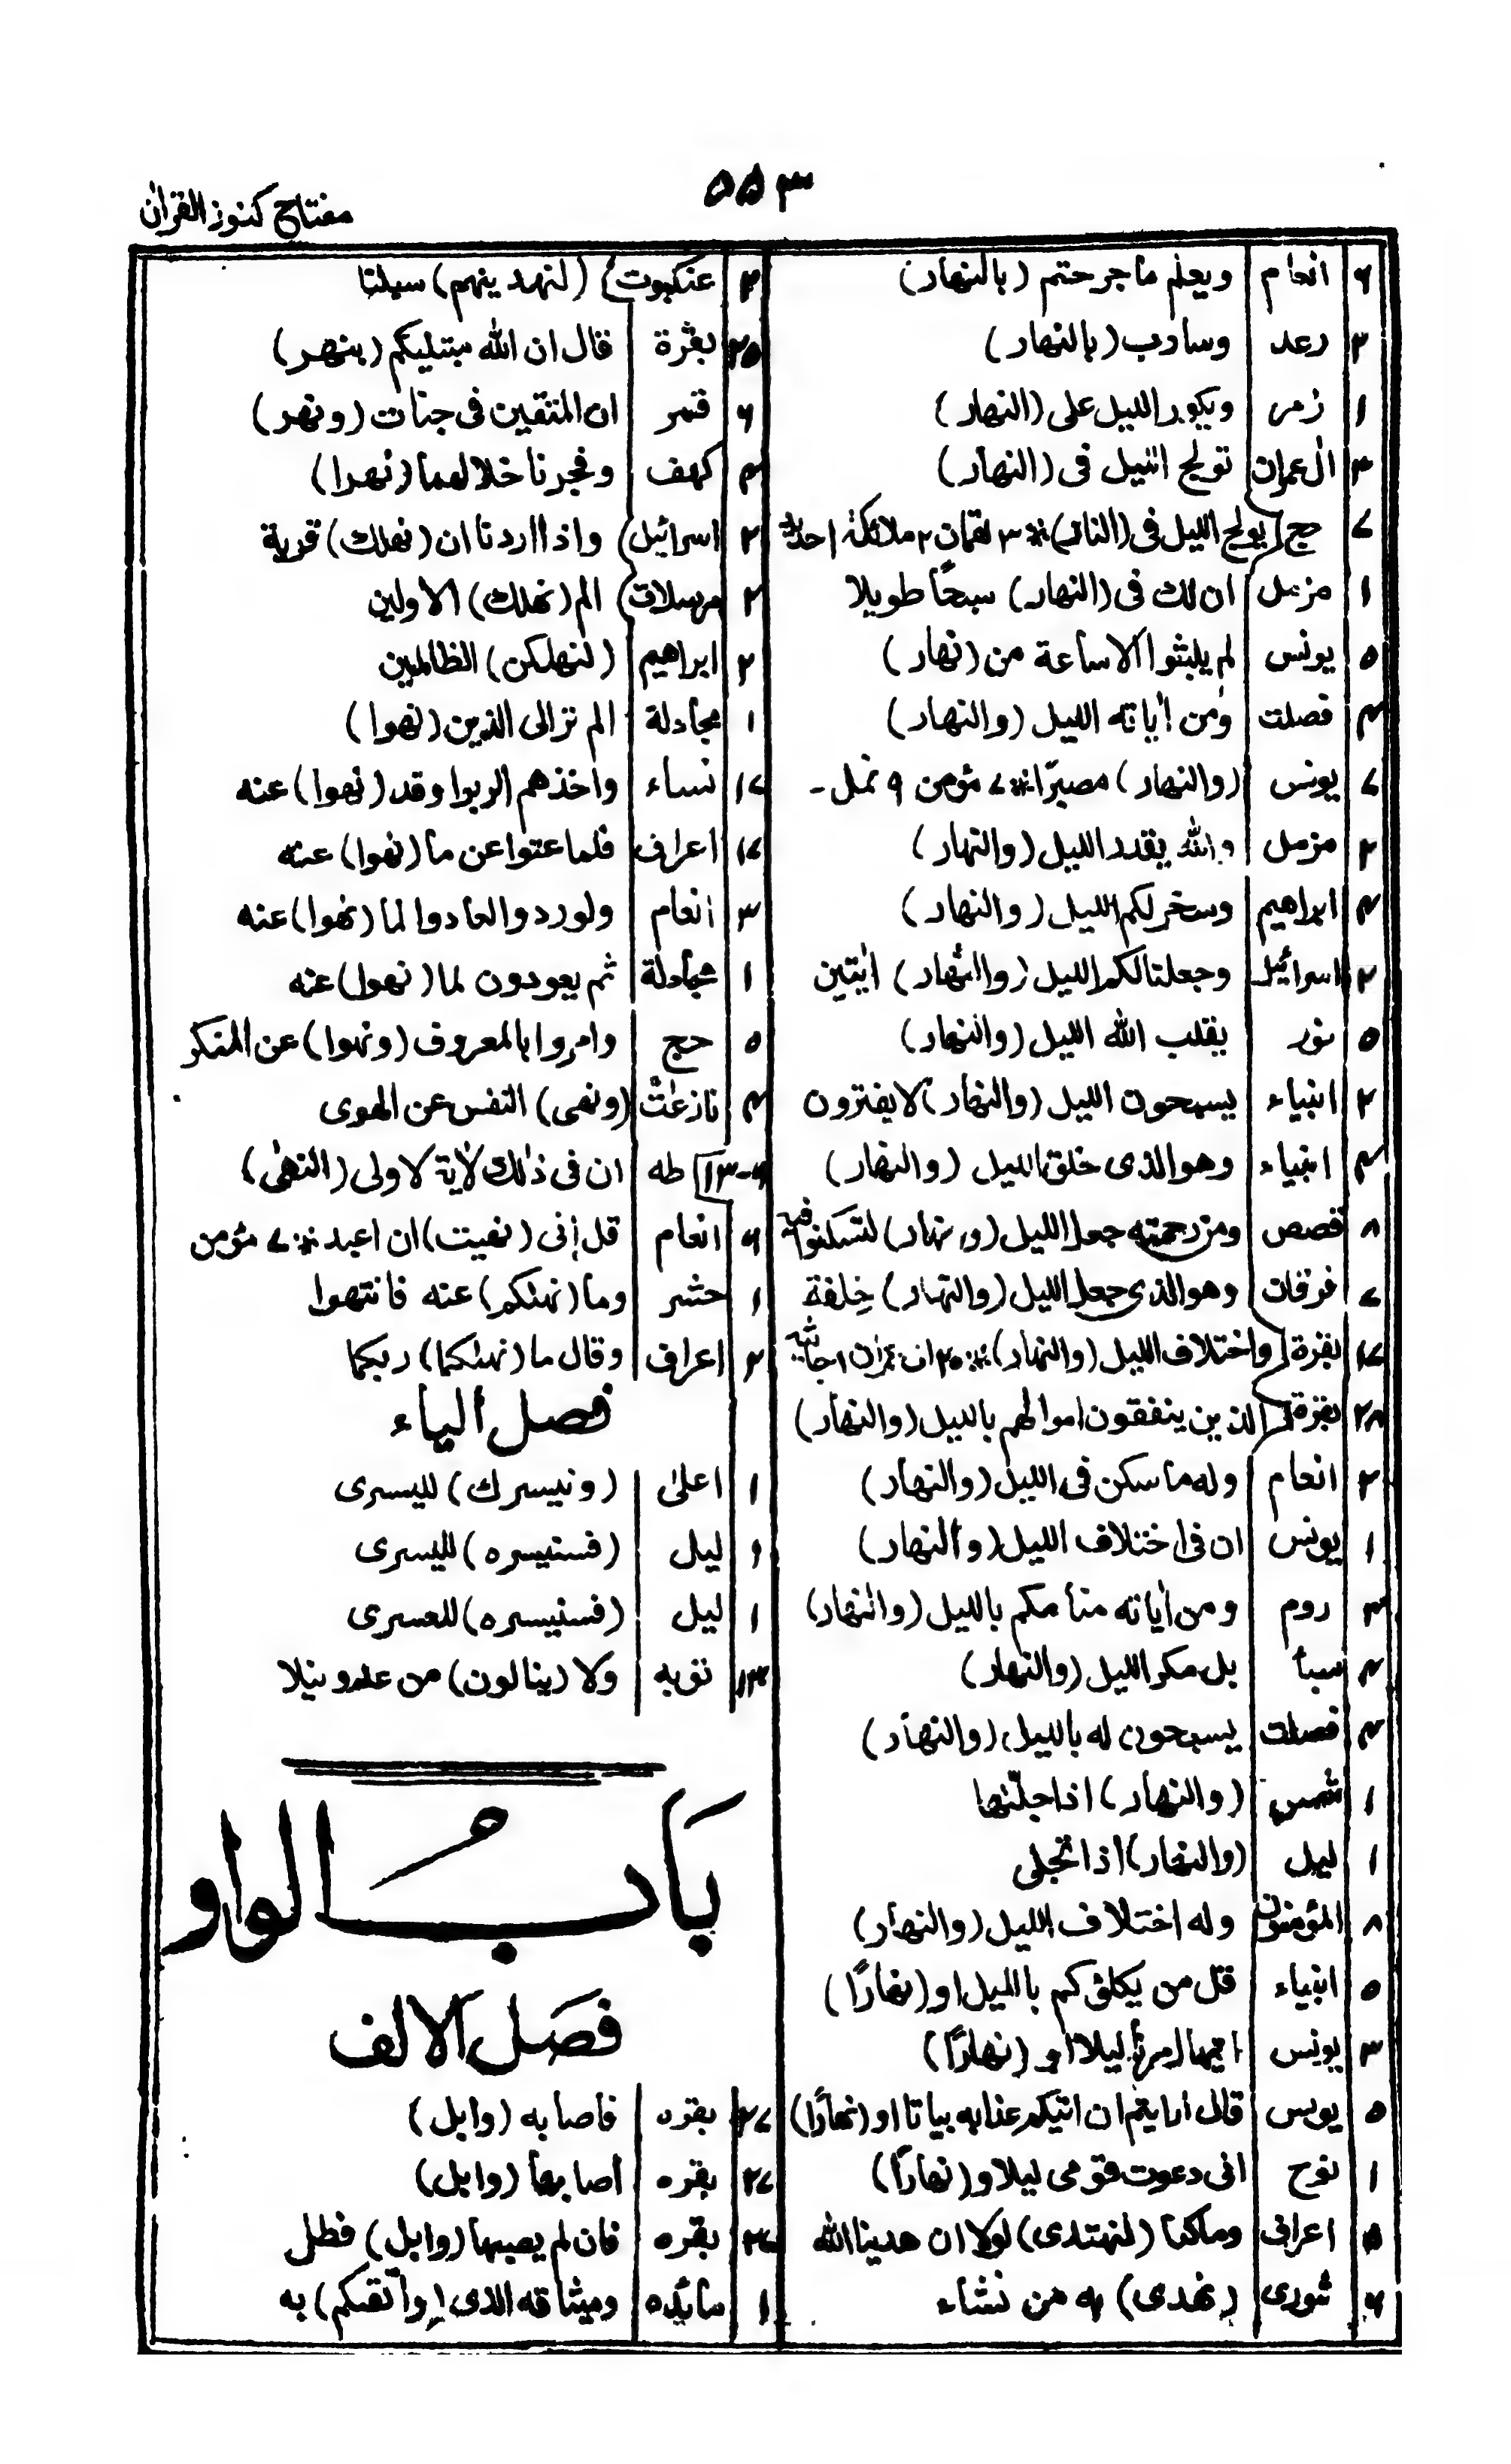 ۵۵۳
مفتاح كنوز القرآن
۶ انعام ويعلم ما جرحتم (بالنهار)
۲ رعد وسارب (بالنهار)
۱ زمر ويكور الليل على (النهار)
۳ ال عمران تولج الليل فى (النهار)
۷ حج يولج الليل فى (النهار) ٭ ۳ لقمان ۲ ملائكة ۱ حديد
۱ مزمل ان لك فى (النهار) سبحًا طويلا
۵ يونس لم يلبثوا الا ساعة من (نهار)
۴ فصلت ومن اٰياته الليل (والنهار)
۷ يونس (والنهار) مصبرًا ٭ ۷ مؤمن ۹ نمل -
۲ مزمل والله يقدر الليل (والنهار)
۴ ابراهيم وسخر لكم الليل (والنهار)
۲ اسرائيل وجعلنا لكم الليل (والنهار) اٰيتين
۵ نور يقلب الله الليل (والنهار)
۲ انبياء يسبحون الليل (والنهار) لا يفترون
۳ انبياء وهو الذى خلق الليل (والنهار)
۸ قصص ومن رحمته جعل الليل (والنهار) لتسكنوا فيه
۷ فرقان وهو الذى جعل الليل (والنهار) خِلفة
۱۷ بقرة واختلاف الليل (والنهار) ٭ ۲۰ ال عمران ۱ جاثيه
۲۸ بقرة الذين ينفقون اموالهم بالليل (والنهار)
۲ انعام وله ما سكن فى الليل (والنهار)
۱ يونس ان فى اختلاف الليل (والنهار)
۳ روم ومن اٰياته منامكم بالليل (والنهار)
۴ سبأ بل مكر الليل (والنهار)
۴ فصلت يسبحون له بالليل (والنهار)
۱ شمس (والنهار) اذا جلّٰها
۱ ليل (والنهار) اذا تجلى
۸ المؤمنون وله اختلاف الليل (والنهار)
۵ انبياء قل من يكلؤكم بالليل او (نهارًا)
۳ يونس اتيها امرنا ليلا او (نهارًا)
۵ يونس قال ارايتم ان اتيكم عذابه بياتا او (نهارًا)
۱ نوح انى دعوت قومى ليلا و (نهارًا)
۵ اعراف وما كنا (لنهتدى) لولا ان هدينا الله
۶ شورى (نهدى) به من نشاء
۳ عنكبوت (لنهدينهم) سبلنا
۲۵ بقرة قال ان الله مبتليكم (بنهر)
۶ قمر ان المتقين فى جنات (ونهر)
۴ كهف وفجرنا خلالهما (نهرا)
۲ اسرائيل واذا اردنا ان (نهلك) قرية
۲ مرسلات الم (نهلك) الاولين
۲ ابراهيم (لنهلكن) الظالمين
۱ مجادلة الم تر الى الذين (نهوا)
۱۷ نساء واخذهم الربوا وقد (نهوا) عنه
۱۷ اعراف فلما عتوا عن ما (نهوا) عنه
۳ انعام ولو ردوا لعادوا لما (نهوا) عنه
۱ مجادلة ثم يعودون لما (نهوا) عنه
۵ حج وامروا بالمعروف (ونهوا) عن المنكر
۴ نازعٰت (ونهى) النفس عن الهوى
۶-۱۳ طه ان فى ذٰلك لاٰية لاولى (النهٰى)
۶ انعام قل إنى (نهيت) ان اعبد ٭ ۷ مؤمن
۱ حشر وما (نهٰكم) عنه فانتهوا
۲ اعراف وقال ما (نهٰكما) ربكما
فصل الياء
۱ اعلىٰ (ونيسرك) لليسرى
۱ ليل (فسنيسره) لليسرى
۱ ليل (فسنيسره) للعسرى
۱۴ توبه ولا (ينالون) من عدو نيلا
بَابُ الواو
فصَل الالف
۲۷ بقره فاصابه (وابل)
۲۷ بقره اصابها (وابل)
۲۷ بقره فان لم يصبها (وابل) فطل
۱ مائده وميثاقه الذى (واثقكم) به